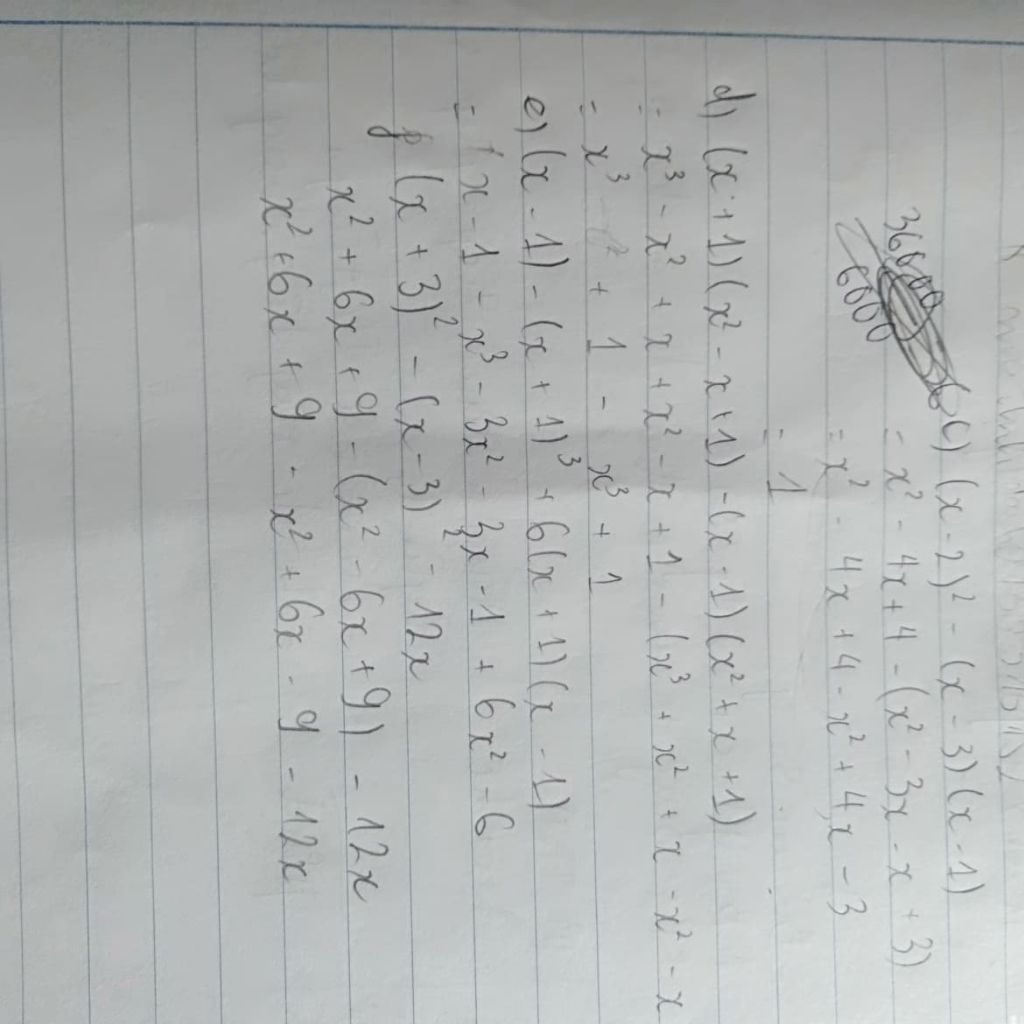 36000
6000
c) (x - 2)² - (x - 3)(x - 1)
= x² - 4x + 4 - (x² - 3x - x + 3)
= x² - 4x + 4 - x² + 4x - 3
= 1
d) (x + 1)(x² - x + 1) - (x - 1)(x² + x + 1)
= x³ - x² + x + x² - x + 1 - (x³ + x² + x - x² - x
= x³ + 1 - x³ + 1
e) (x - 1) - (x + 1)³ + 6(x + 1)(x - 1)
= x - 1 - x³ - 3x² - 3x - 1 + 6x² - 6
f (x + 3)² - (x - 3)² - 12x
x² + 6x + 9 - (x² - 6x + 9) - 12x
x² + 6x + 9 - x² + 6x - 9 - 12x